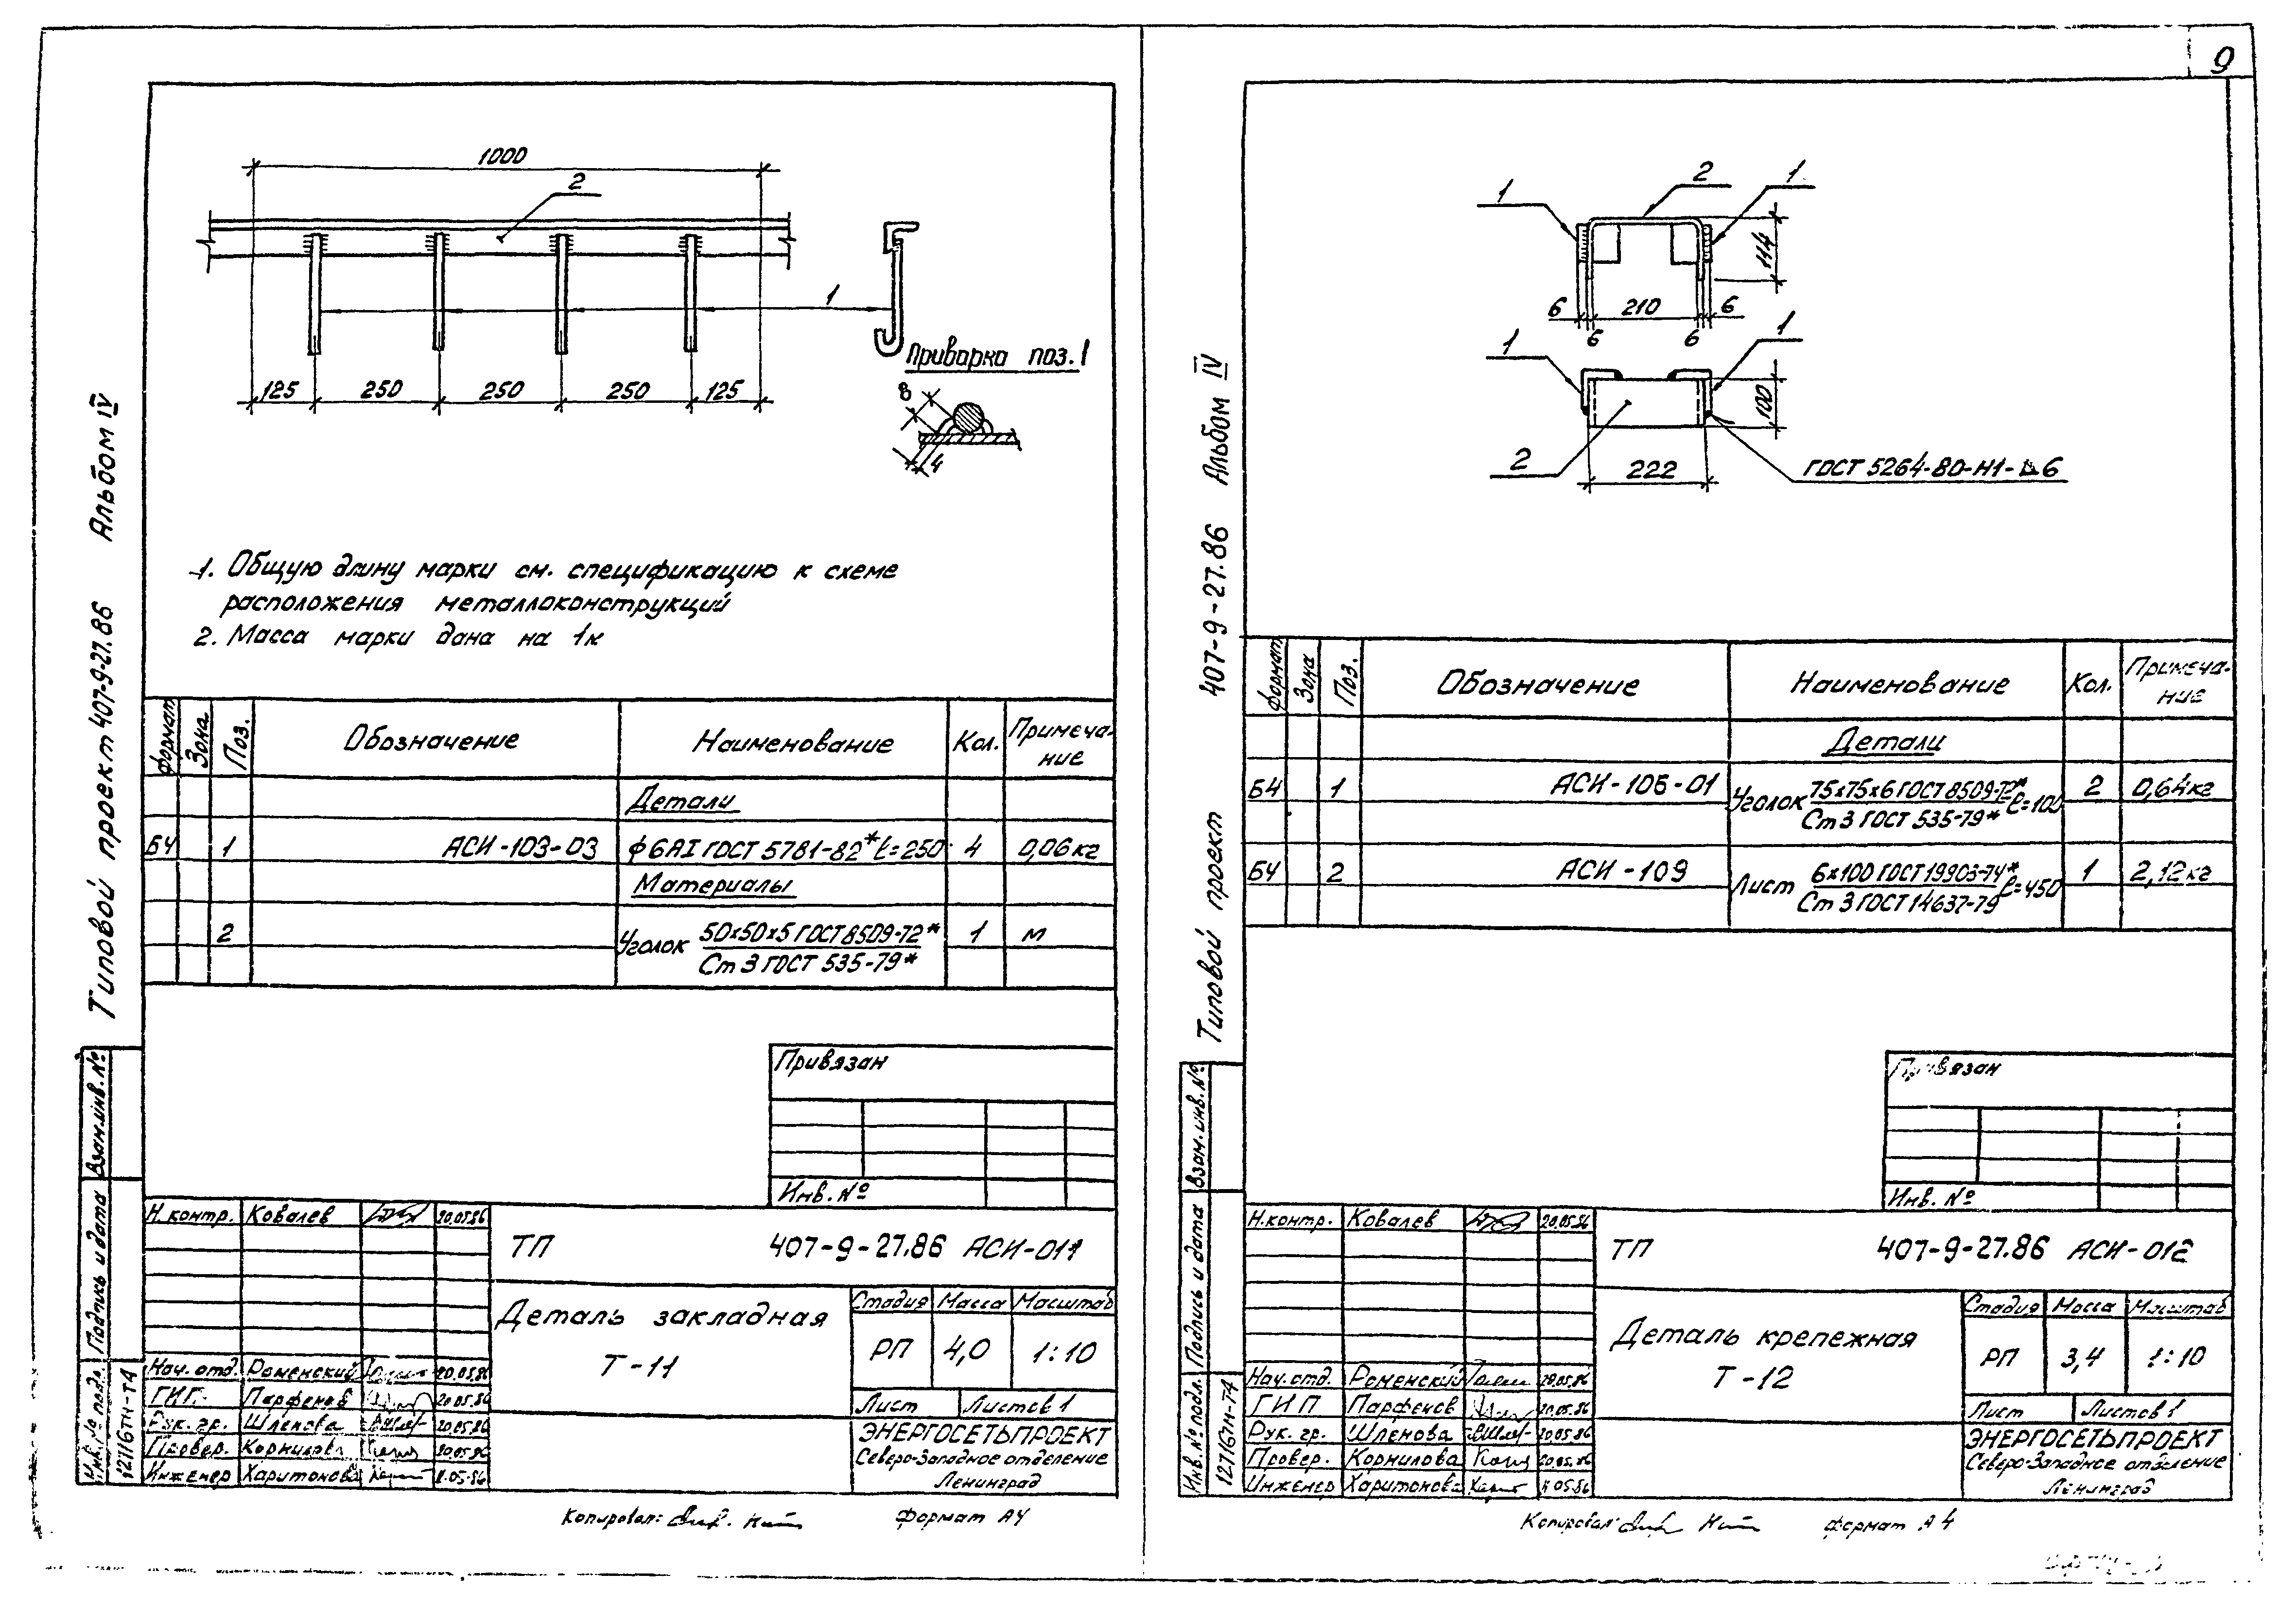 9
1000
2
1
125 250 250 250 125
Приварка поз. 1
8
4
1. Общую длину марки см. спецификацию к схеме
расположения металлоконструкций
2. Масса марки дана на 1м
Формат Зона Поз. Обозначение Наименование Кол. Примеча-
ние
Детали
БЧ 1 АСИ-103-03 ф6АI ГОСТ 5781-82* ℓ=250 4 0,06кг
Материалы
2 Уголок 50x50x5 ГОСТ 8509-72* 1 м
Ст 3 ГОСТ 535-79*
Привязан
Инв. №
Н.контр. Ковалев 20.05.86
ТП 407-9-27.86 АСИ-011
Деталь закладная
Т-11
Стадия Масса Масштаб
РП 4,0 1:10
Лист Листов 1
Нач. отд. Роменский 20.05.86
ГИП Парфенов 20.05.86
Рук. гр. Шленова 20.05.86
Провер. Корнилова 20.05.86
Инженер Харитонова 05.86
ЭНЕРГОСЕТЬПРОЕКТ
Северо-Западное отделение
Ленинград
Копировал: Формат А4
Типовой проект 407-9-27.86 Альбом IV
Взам.инв.№
Подпись и дата
Инв.№ подл.
12716тм-т4
1 2 1
114
6 210 6
6 6
1 1
100
2
222
ГОСТ 5264-80-Н1-⊿6
Формат Зона Поз. Обозначение Наименование Кол. Примеча-
ние
Детали
БЧ 1 АСИ-106-01 Уголок 75x75x6 ГОСТ 8509-72* ℓ=100 2 0,64кг
Ст 3 ГОСТ 535-79*
БЧ 2 АСИ-109 Лист 6x100 ГОСТ 19903-74* ℓ=450 1 2,12кг
Ст 3 ГОСТ 14637-79
Привязан
Инв. №
Н.контр. Ковалев 20.05.86
ТП 407-9-27.86 АСИ-012
Деталь крепежная
Т-12
Стадия Масса Масштаб
РП 3,4 1:10
Лист Листов 1
Нач.отд. Роменский 20.05.86
ГИП Парфенов 20.05.86
Рук. гр. Шленова 20.05.86
Провер. Корнилова 20.05.86
Инженер Харитонова 05.86
ЭНЕРГОСЕТЬПРОЕКТ
Северо-Западное отделение
Ленинград
Копировал: Формат А4
Типовой проект 407-9-27.86 Альбом IV
Взам.инв.№
Подпись и дата
Инв.№ подл.
12716тм-т4